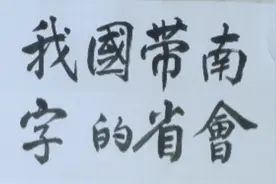 我國带南
字的省會